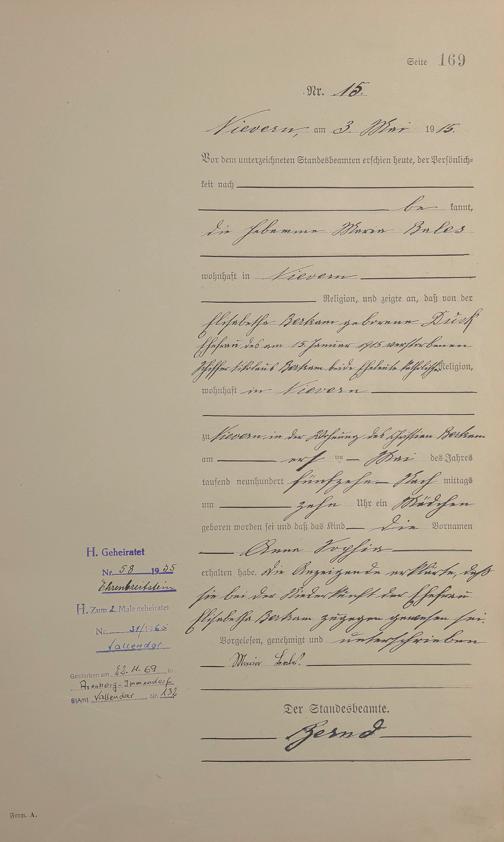 Seite 169
Nr. 15.
Nievern, am 3. Mai 1915.
Vor dem unterzeichneten Standesbeamten erschien heute, der Persönlich-
keit nach
be kannt,
die Hebamme Maria Bales
wohnhaft in Nievern
Religion, und zeigte an, daß von der
Elisabetha Bertram geborene Dück
Ehefrau des am 15. Januar 1915 verstorbenen
Schiffer Nikolaus Bertram beide Eheleute katholischer Religion,
wohnhaft in Nievern
zu Nievern in der Wohnung des Bertram
am ersten Mai des Jahres
tausend neunhundert fünfzehn Nach mittags
um zehn Uhr ein Mädchen
geboren worden sei und daß das Kind die Vornamen
Anna Sophia
erhalten habe. Die Anzeigende erklärte, daß
sie bei der Niederkunft der Ehefrau
Elisabetha Bertram zugegen gewesen sei.
Vorgelesen, genehmigt und unterschrieben
Maria Bales.
Der Standesbeamte.
Bernd
H. Geheiratet
Nr. 58 1935
Ehrenbreitstein
H. Zum 2 Male geheiratet
Nr. 31/1965
Vallendar
Gestorben am 22.11.69 in
Arenberg-Immendorf
StAmt Vallendar Nr. 132
Form A.